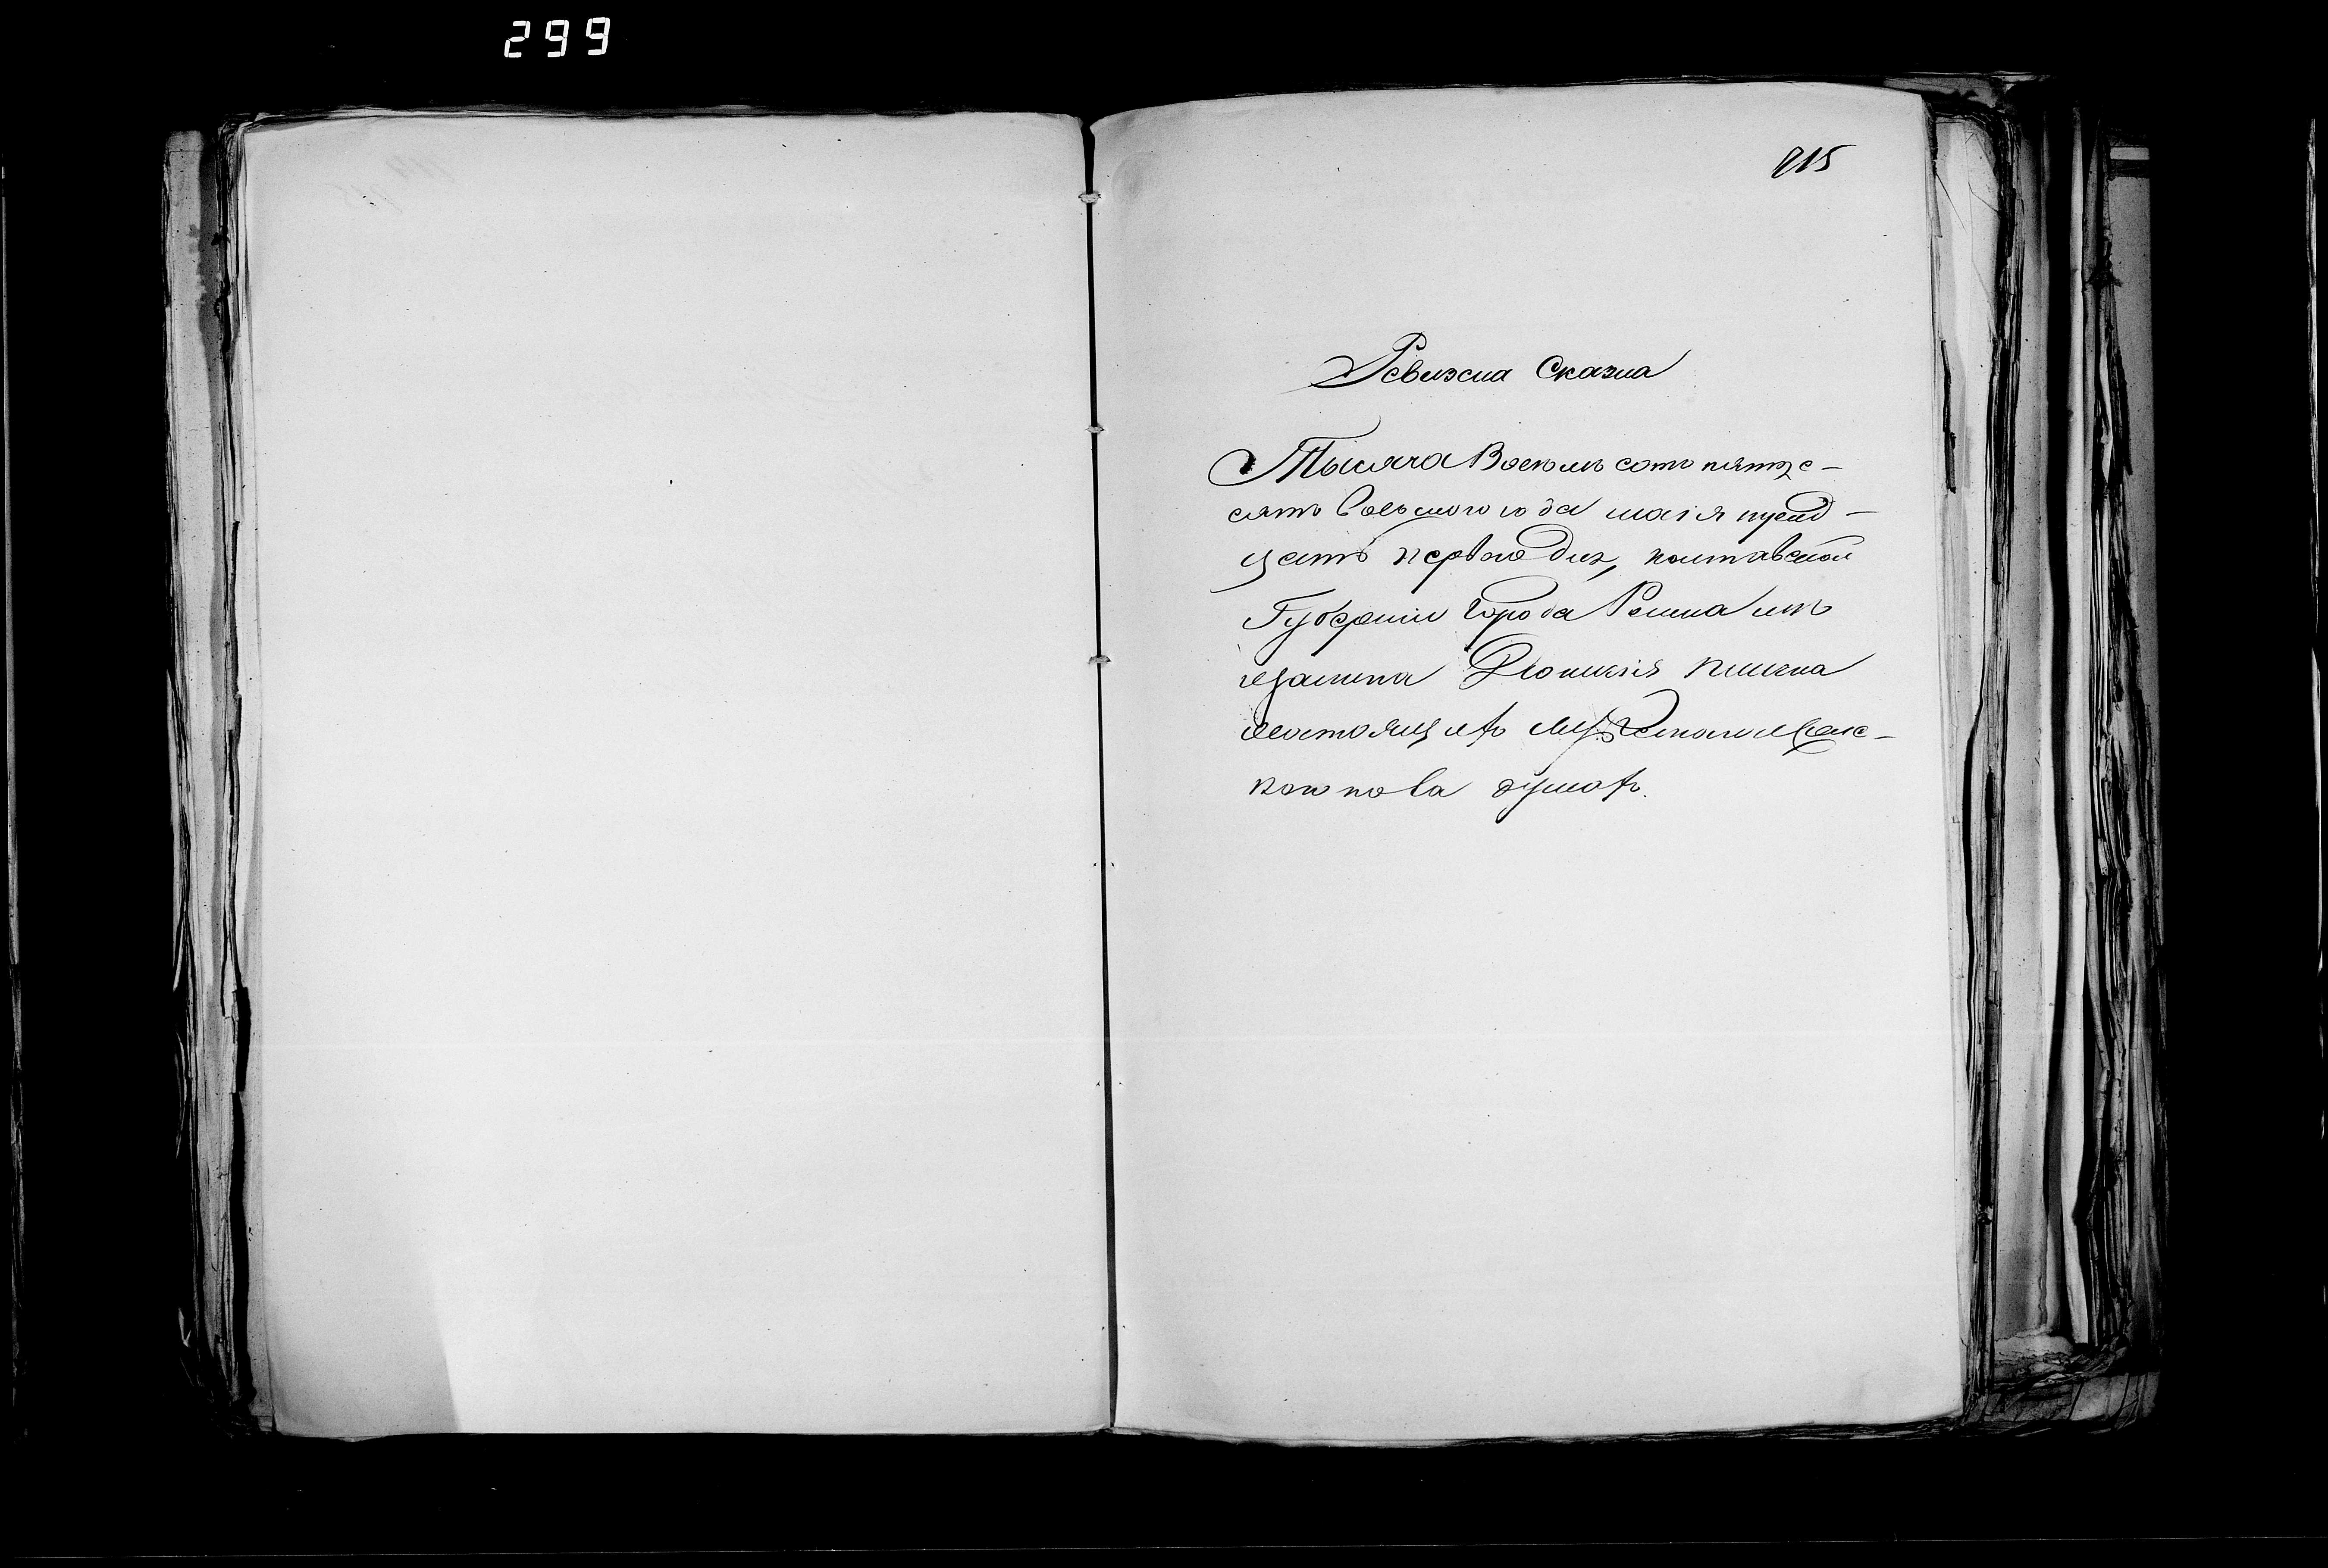 299
915
Ревизсиа Сказиа
Тысяча Восемь сотъ пятде-
сятъ Восьмого года маія
цать первого дня, полтавской
Губерніи Города Ромна мѣ
щанина Діонизія
состоящихъ
пола душахъ.